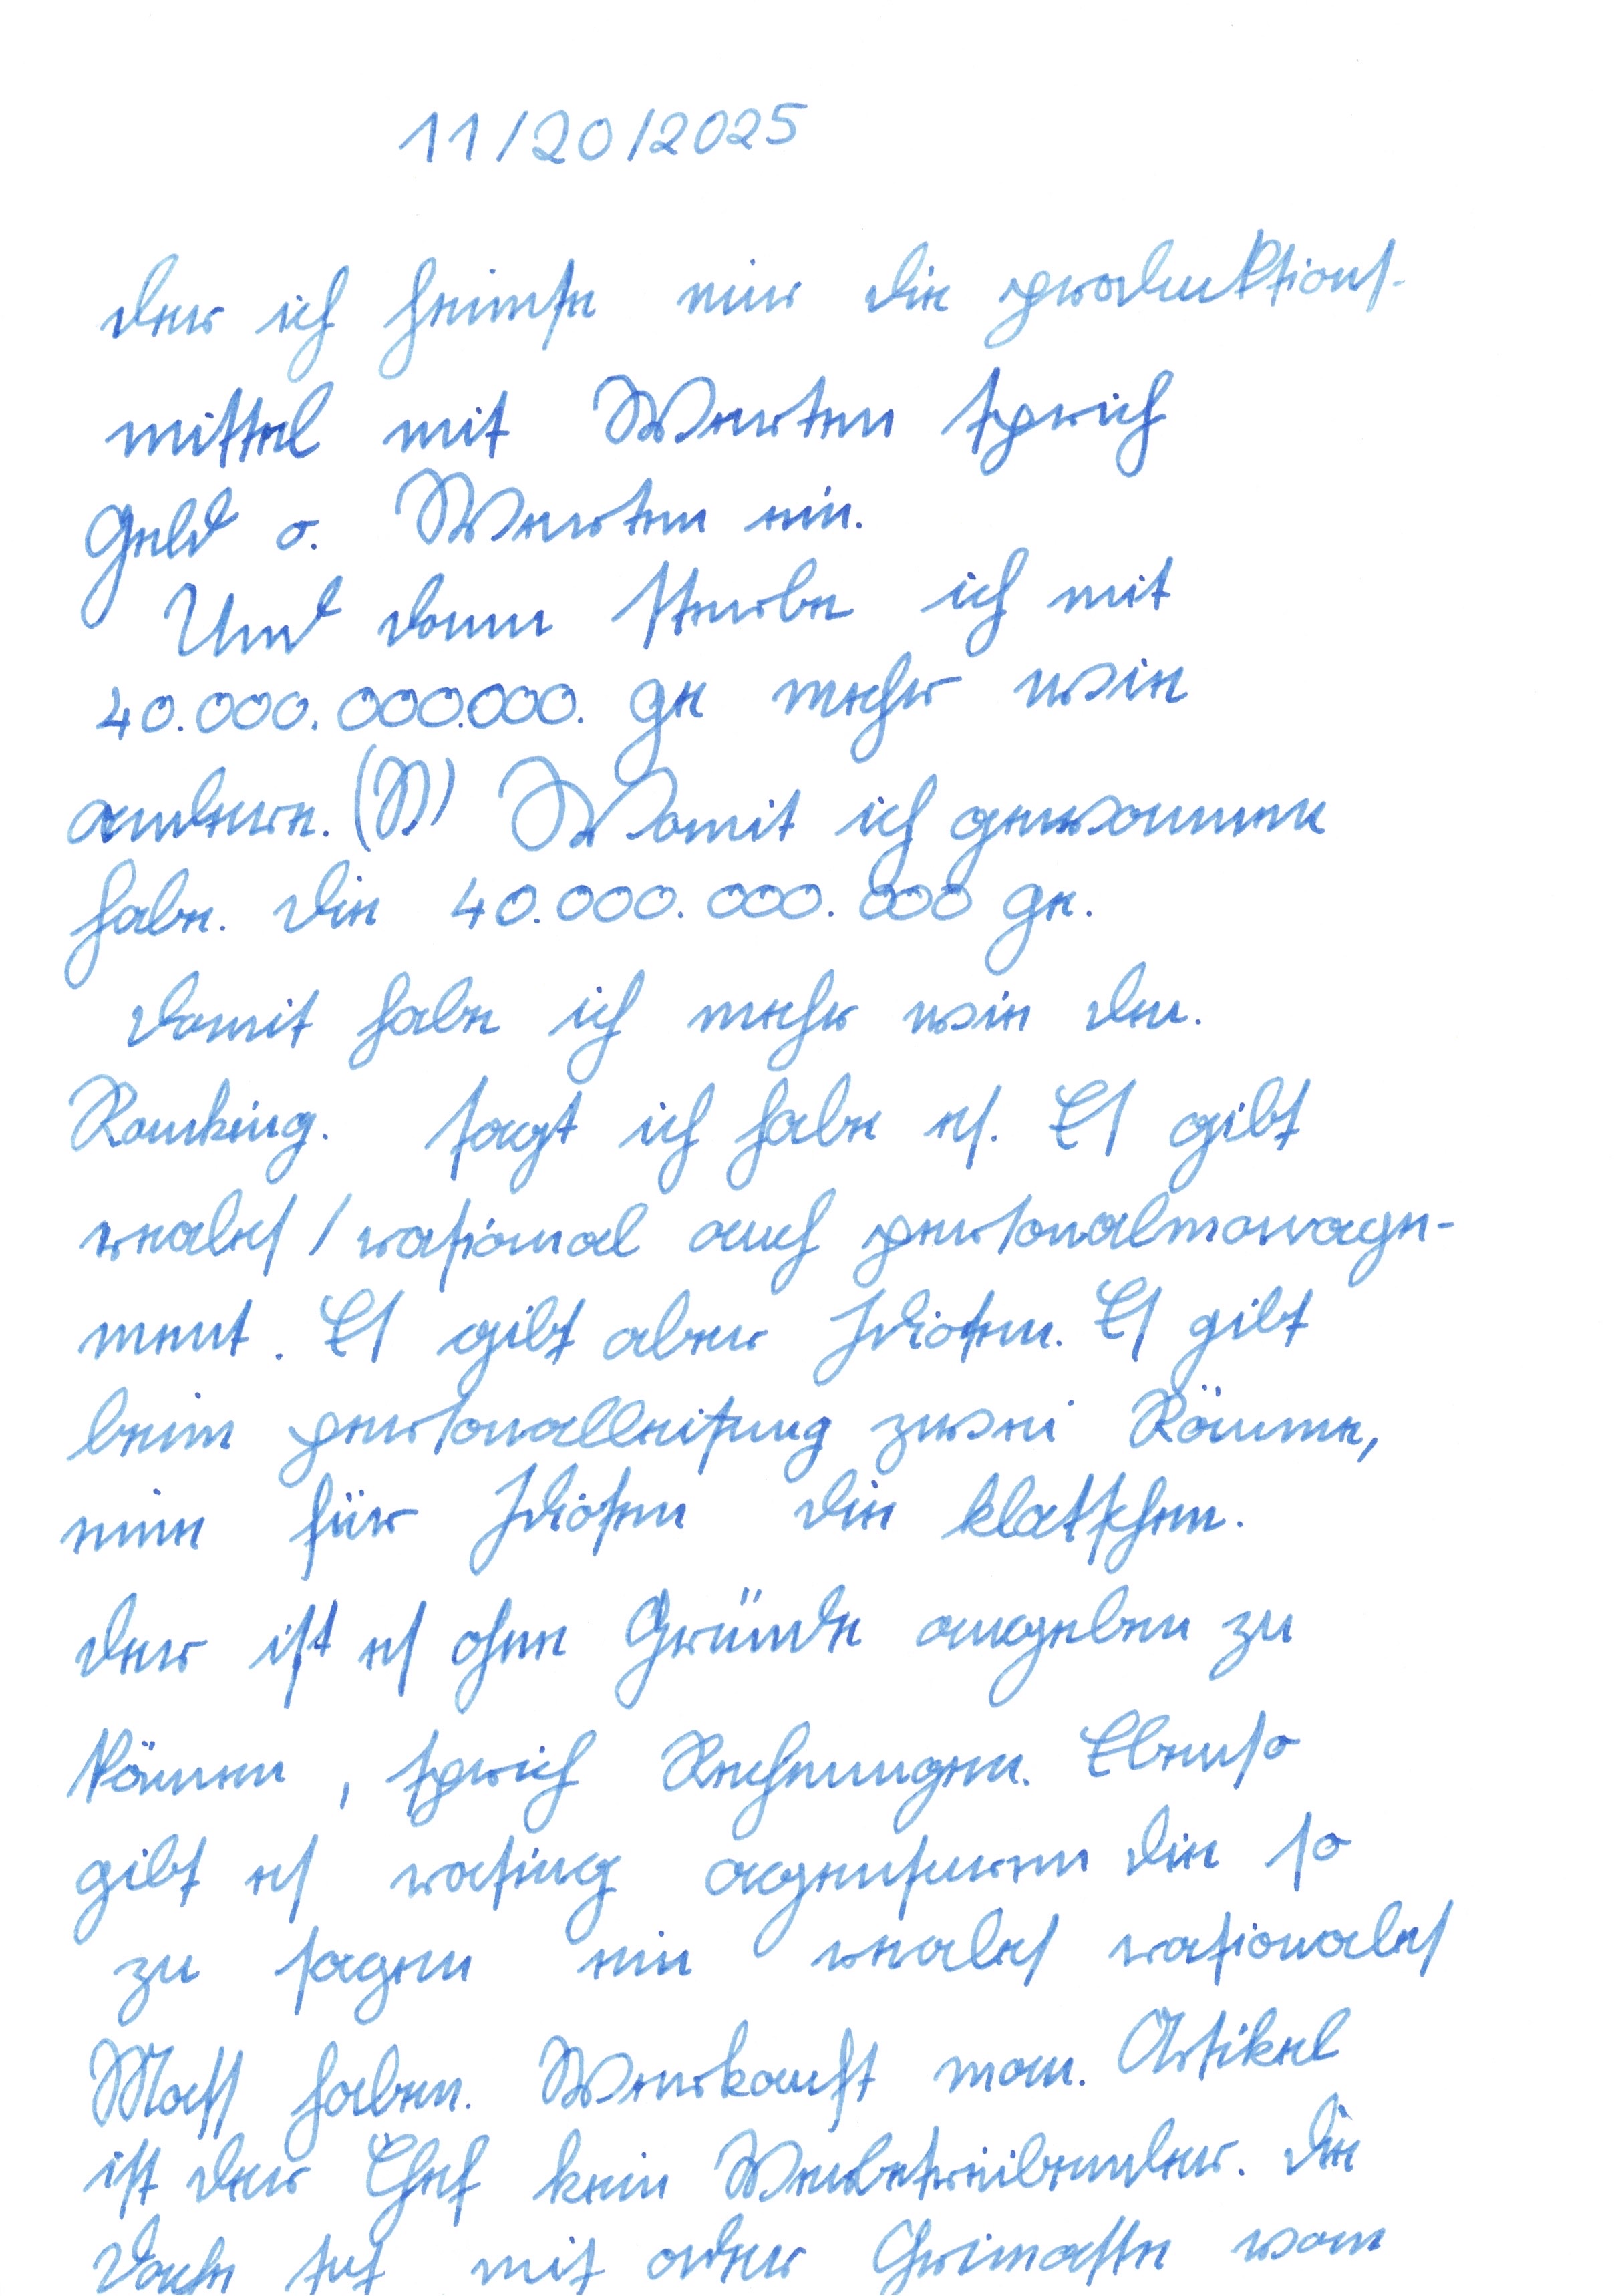 11/20/2025
der ich heimse mir die produktions-
mittel mit Werten sprich
Geld o. Werten ein.
Und dann sterbe ich mit
40.000.000.000. ge mehr wie
andere. Womit ich gewonnen
habe. die 40.000.000.000 ge.
damit habe ich mehr wie den.
Ranking. sagt ich habe es. Es gibt
reales / rational auch personalmanage-
ment. Es gibt aber Idioten. Es gibt
beim personalleitung zwei Räume,
eine für Idioten die klatschen.
der ist es ohne Gründe angeben zu
können, sprich Rechnungen. Ebenso
gibt es rating agenturen die so
zu sagen ein reales rationales
Mass haben. Verkauft man. Artikel
ist der Chef kein Werbetreibender. die
tut mit oder Grimasse vom